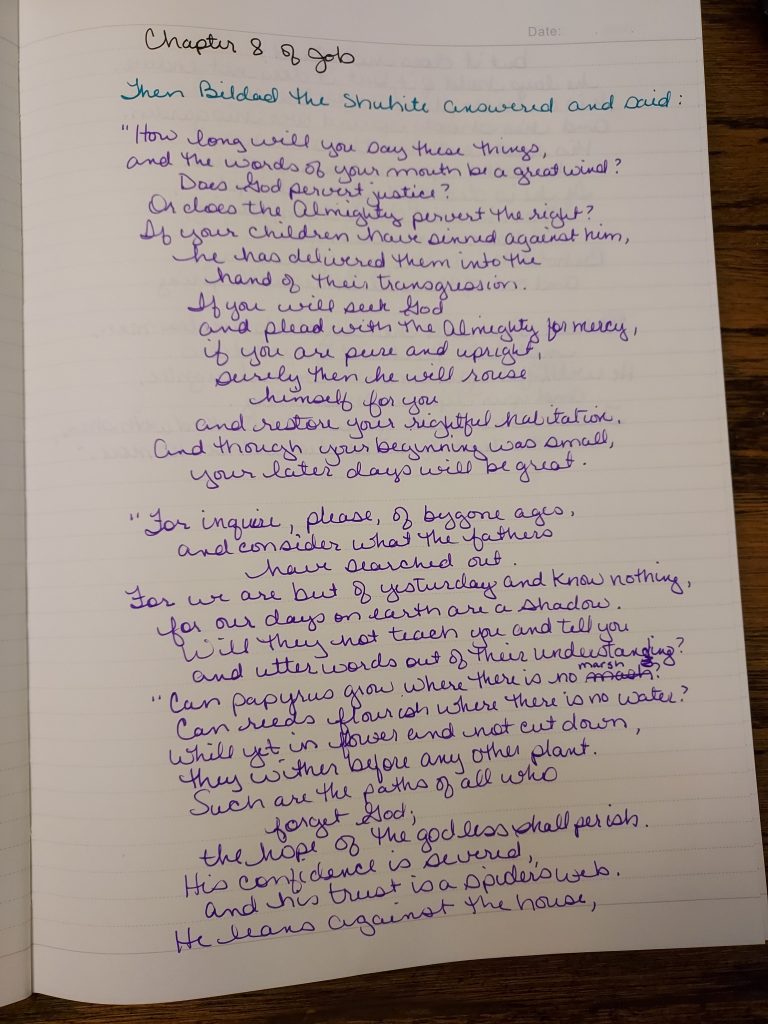 Date:
Chapter 8 of Job
Then Bildad the Shuhite answered and said:
"How long will you say these things,
and the words of your mouth be a great wind?
Does God pervert justice?
Or does the Almighty pervert the right?
If your children have sinned against him,
he has delivered them into the
hand of their transgression.
If you will seek God
and plead with the Almighty for mercy,
if you are pure and upright,
surely then he will rouse
himself for you
and restore your rightful habitation.
And though your beginning was small,
your later days will be great.
"For inquire, please, of bygone ages,
and consider what the fathers
have searched out.
For we are but of yesturday and know nothing,
for our days on earth are a shadow.
Will they not teach you and tell you
and utter words out of their understanding?
"Can papyrus grow where there is no marsh?
Can reeds flourish where there is no water?
While yet in flower and not cut down,
they wither before any other plant.
Such are the paths of all who
forget God;
the hope of the godless shall perish.
His confidence is severed,
and his trust is a spider's web.
He leans against the house,